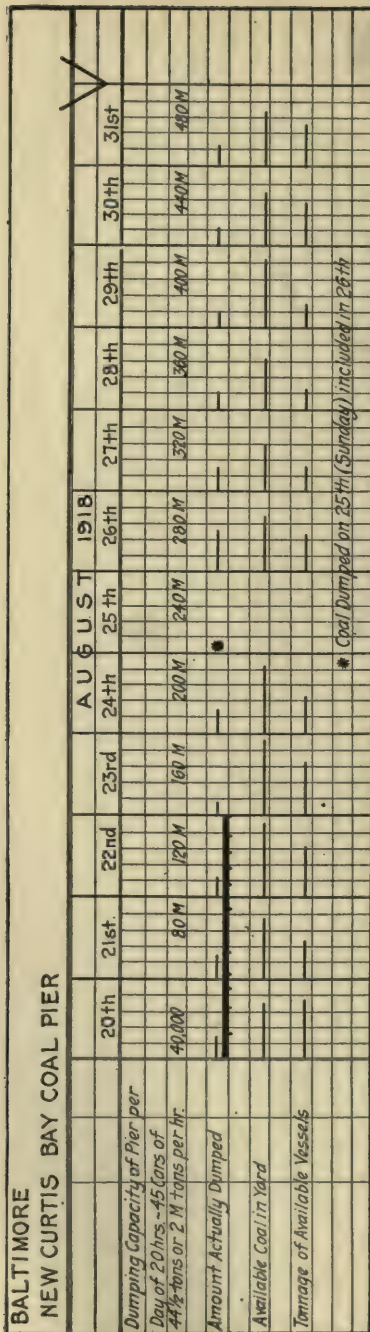 BALTIMORE
NEW CURTIS BAY COAL PIER
AUGUST 1918
20th 21st. 22nd 23rd 24th 25th 26th 27th 28th 29th 30th 31st
Dumping Capacity of Pier per
Day of 20 hrs.-45 Cars of
44½ tons or 2 M tons per hr.
40,000 80 M 120 M 160 M 200 M 240 M 280 M 320 M 360 M 400 M 440 M 480 M
Amount Actually Dumped
*
Available Coal in Yard
Tonnage of Available Vessels
* Coal Dumped on 25th (Sunday) included in 26th